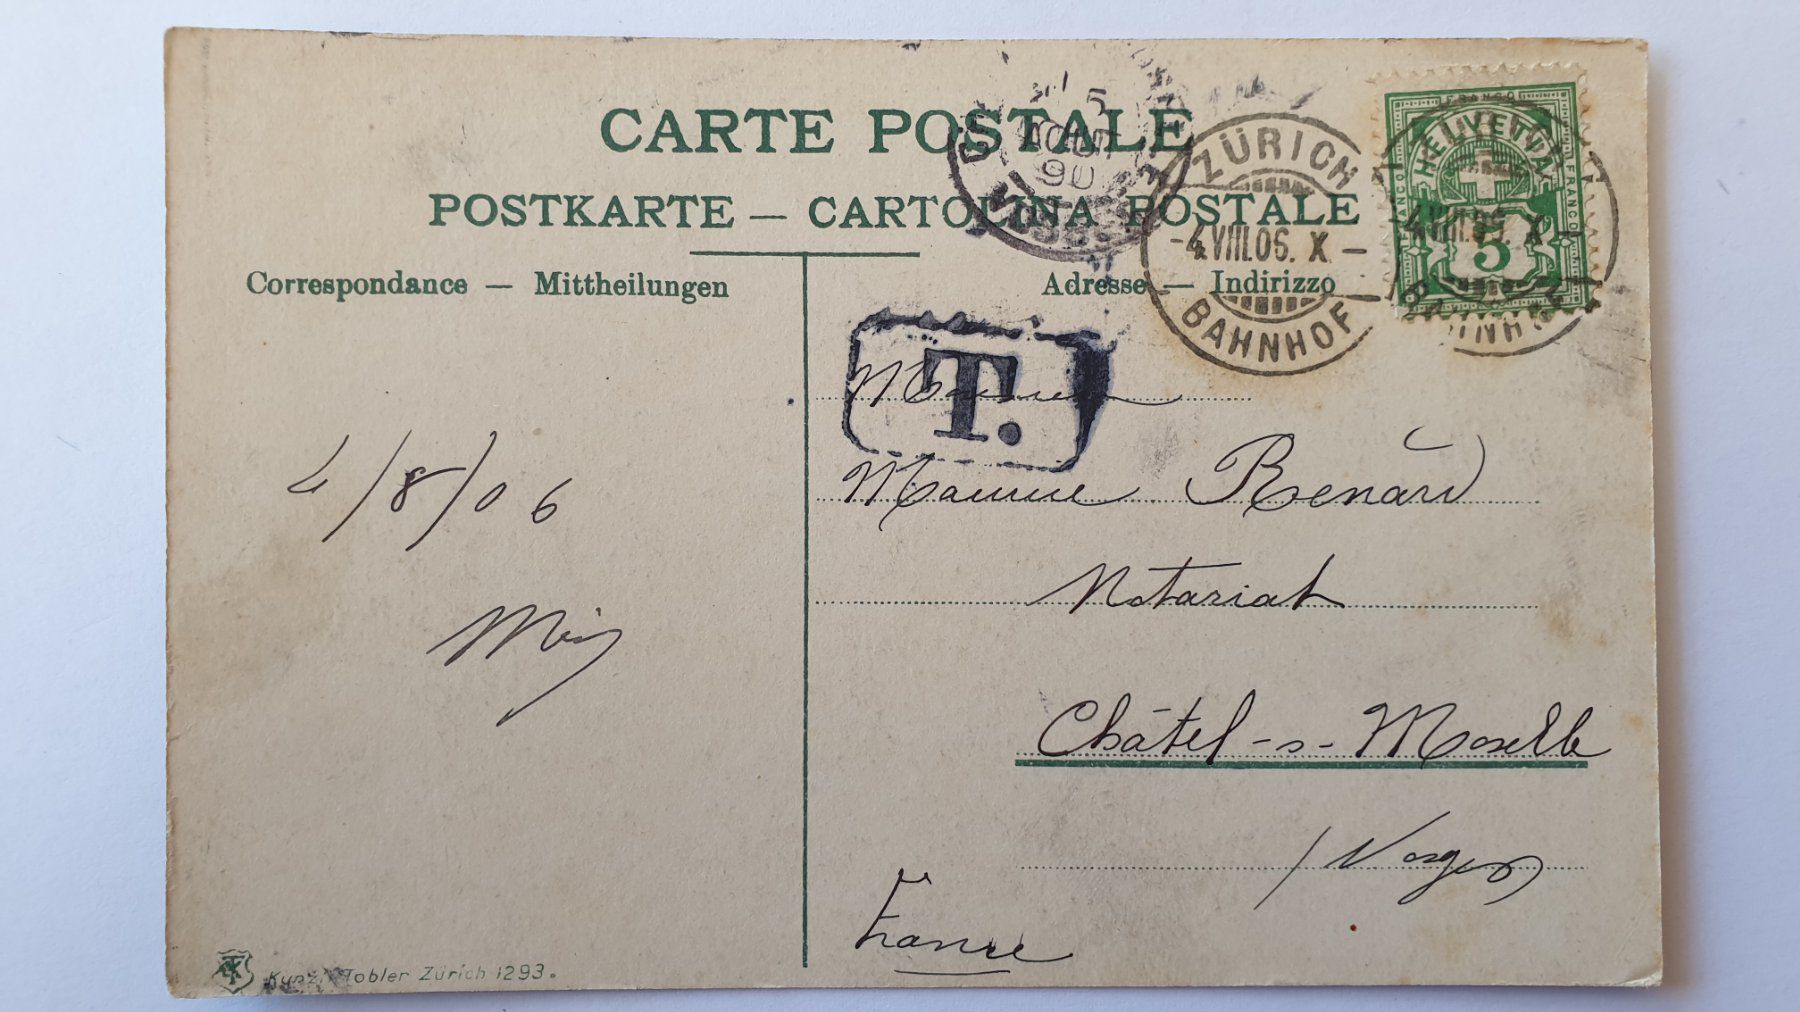 CARTE POSTALE
POSTKARTE — CARTOLINA POSTALE
Correspondance — Mittheilungen
Adresse — Indirizzo
FRANCO
HELVETIA
FRANCO
5
ZÜRICH
-4.VIII.06. X -
BAHNHOF
5
AOUT
T.
Renard
Notariat
Châtel-s-Moselle
/Vosges
France
4/8/06
Kunzli-Tobler Zürich 1293.